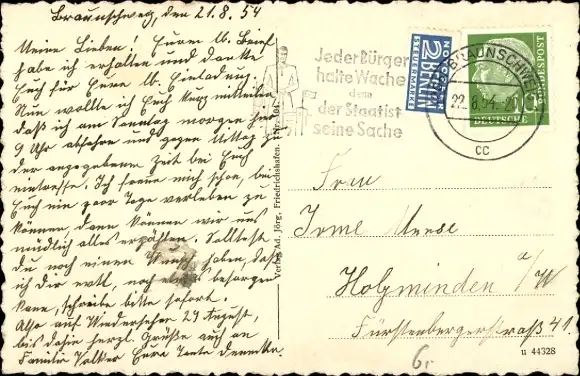 Braunschweig, den 21.8.54
Meine Lieben! Euren lb. Brief
habe ich erhalten und danke
Euch für Eure lb. Einladung.
Nun wollte ich Euch kurz mitteilen
daß ich am Sonntag morgen
9 Uhr abfahre und gegen Mittag zu
der angegebenen Zeit bei Euch
eintreffe. Ich freue mich schon, bei
Euch ein paar Tage verleben zu
können, dann können wir uns
mündlich alles erzählen. Solltest
du noch einen Wunsch haben, daß
ich Dir evtl. noch etwas besorgen
kann, schreibe bitte sofort.
Also auf Wiedersehen 29 August,
bis dahin herzl. Grüße auch an
Familie Volker Eure Tante
Verlag Ad. Jörg, Friedrichshafen.
Jeder Bürger
halte Wache
dem
der Staat ist
seine Sache
NOTOPFER
2 BERLIN
STEUERMARKE
BRAUNSCHWEIG
22.8.54
cc
DEUTSCHE
BUNDESPOST
Frau
Irme
Holzminden a/W
Fürstenbergerstraß 41.
6,-
u 44328